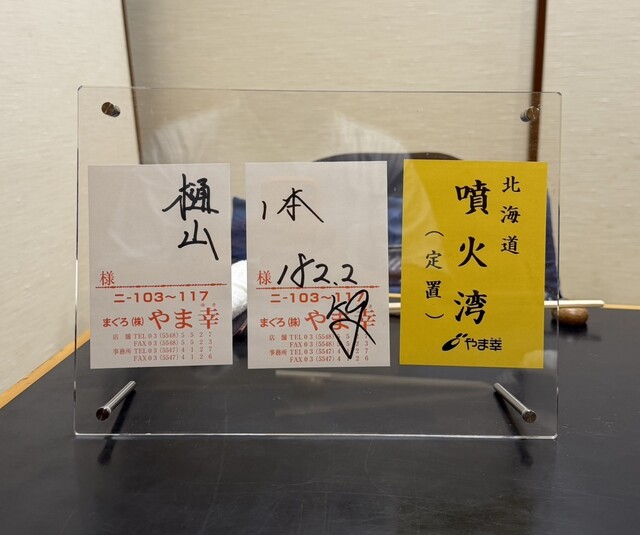 樋山
様
ニ-103～117
まぐろ(株)やま幸
店舗TEL03(5548)5527
FAX03(5548)5523
事務所TEL03(5547)4127
FAX03(5547)4126
1本
様 182.2
ニ-103～117
まぐろ(株)やま幸
店舗TEL03(5548)5527
FAX03(5548)5523
事務所TEL03(5547)4127
FAX03(5547)4126
北海道
噴火湾
(定置)
やま幸